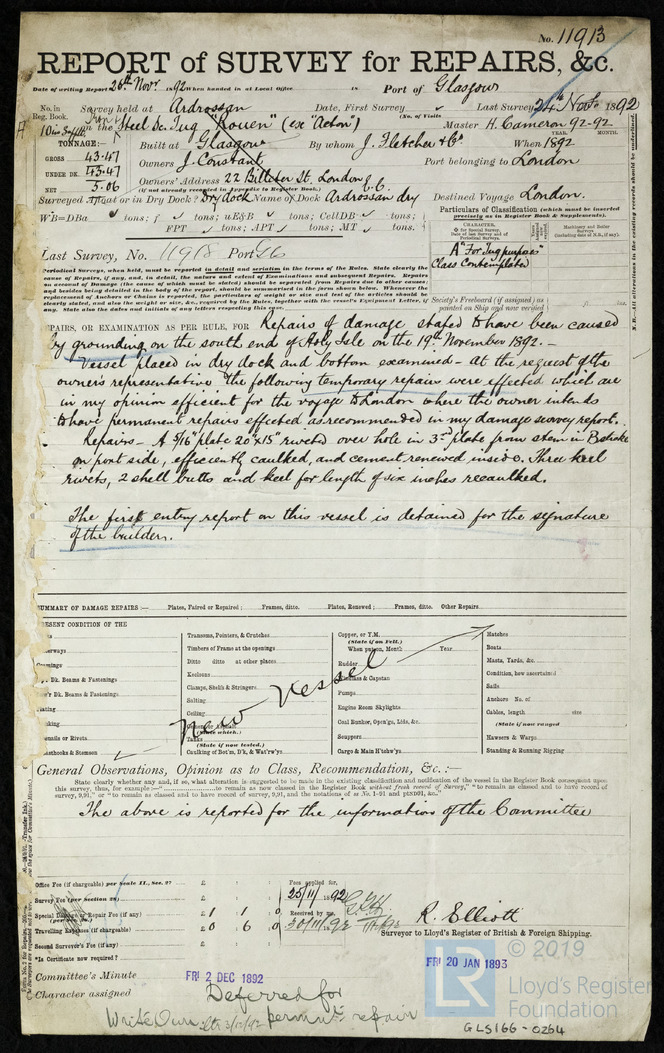 No. 11913
REPORT of SURVEY for REPAIRS, &c.
Date of writing Report 26th Novr. 1892 When handed in at Local Office 18 Port of Glasgow
No. in Reg. Book. Survey held at Ardrossan Date, First Survey Last Survey 24th Novr. 1892
(No. of Visits
on the Steel Sc. Tug "Rouen" (ex "Acton") Master H. Cameron 92-92
TONNAGE:— Built at Glasgow By whom J. Fletcher & Co When 1892
YEAR. MONTH.
GROSS 43.47 Owners J. Constant Port belonging to London
UNDER DK. 43.47
NET 3.06 Owners' Address 22 Billiter St. London E.C.
(if not already recorded in Appendix to Register Book.)
Surveyed Afloat or in Dry Dock? Dry dock Name of Dock Ardrossan dry Destined Voyage London.
WB=DBa tons; f tons; uE&B tons; CellDB tons;
FPT tons; APT tons; MT tons.
Particulars of Classification (which must be inserted precisely as in Register Book & Supplements).
CHARACTER.
A "For Tug purposes"
Class Contemplated
Last Survey, No. 11913 Port Gls
Periodical Surveys, when held, must be reported in detail and seriatim in the terms of the Rules. State clearly the
cause of Repairs, if any, and, in detail, the nature and extent of Examinations and subsequent Repairs. Repairs
on account of Damage (the cause of which must be stated) should be separated from Repairs due to other causes;
and besides being detailed in the body of the report, should be summarised in the form shown below. Whenever the
replacement of Anchors or Chains is reported, the particulars of weight or size and test of the articles should be
clearly stated, and also the weight or size, &c., required by the Rules, together with the vessel's Equipment Letter, if
any. State also the dates and initials of any letters respecting this case.
Society's Freeboard (if assigned) as painted on Ship and now verified
REPAIRS, OR EXAMINATION AS PER RULE, FOR Repairs of damage stated to have been caused
by grounding on the south end of Holy Isle on the 19th November 1892.—
Vessel placed in dry dock and bottom examined — at the request of the
owner's representative the following temporary repairs were effected which are
in my opinion efficient for the voyage to London where the owner intends
to have permanent repairs effected as recommended in my damage survey report.
Repairs — A 5/16" plate 20"x15" riveted over hole in 3rd plate from stem in B strake
on port side, efficiently caulked, and cement renewed inside. Three keel
rivets, 2 shell butts and keel for length of six inches recaulked.
The first entry report on this vessel is detained for the signature
of the builders.
SUMMARY OF DAMAGE REPAIRS:— Plates, Faired or Repaired; Frames, ditto. Plates, Renewed; Frames, ditto. Other Repairs.
PRESENT CONDITION OF THE
Dk. Beams & Fastenings
Dk. Beams & Fastenings
Treenails or Rivets
Breasthooks & Stemson
Transoms, Pointers, & Crutches
Timbers of Frame at the openings
Ditto ditto at other places.
Keelsons
Clamps, Shelfs & Stringers
Salting
Ceiling
(State which.)
Tanks
(State if now tested.)
Caulking of Bot'm, D'k, & Wat'rw'ys.
Copper, or Y.M.
(State if on Felt.)
When put on, Month Year
Rudder
Windlass & Capstan
Pumps
Engine Room Skylights
Coal Bunker, Open'gs, Lids, &c.
Scuppers
Cargo & Main H'tchw'ys
Hatches
Boats
Masts, Yards, &c.
Condition, how ascertained
Sails
Anchors No. of
Cables, length size
(State if now ranged
Hawsers & Warps
Standing & Running Rigging
New Vessel
General Observations, Opinion as to Class, Recommendation, &c. :—
State clearly whether any and, if so, what alteration is suggested to be made in the existing classification and notification of the vessel in the Register Book consequent upon
this survey, thus, for example :—"............to remain as now classed in the Register Book without fresh record of Survey," "to remain as classed and to have record of
survey, 9,91," or "to remain as classed and to have record of survey, 9,91, and the notations of
The above is reported for the information of the Committee
Office Fee (if chargeable) per Scale II., Sec. 2? £ : :
Survey Fee (per Section 28) £ : :
Special Damage or Repair Fee (if any) £ 1 : 1 : 0
(per Section 28.)
Travelling Expenses (if chargeable) £ 0 : 6 : 0
Second Surveyor's Fee (if any) £
*Is Certificate now required?
Fees applied for, 25/11/1892
Received by me, 30/11/1892
R. Elliott
Surveyor to Lloyd's Register of British & Foreign Shipping.
Committee's Minute FRI 2 DEC 1892 FRI 20 JAN 1893
Character assigned Deferred for
permnt. repair
Write Own
N.B.—All alterations in the existing records should be underlined.
© 2019
LR Lloyd's Register
Foundation
GLS166-0264